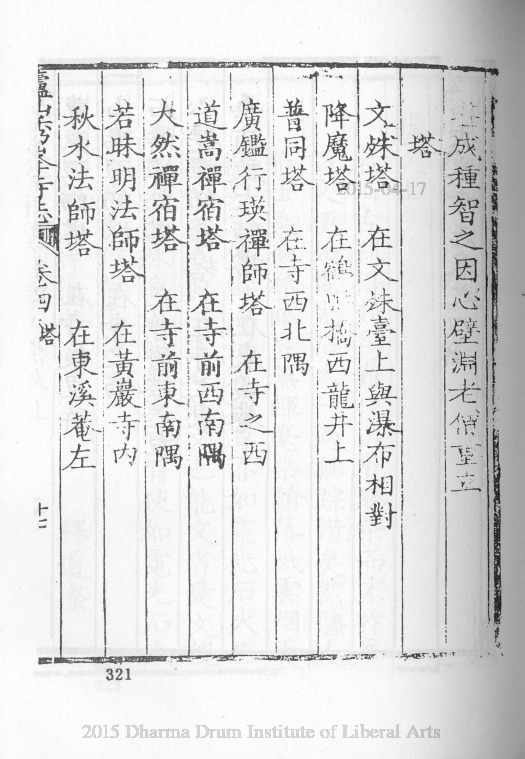 成種智之因心壁淵老僧重立
塔
文殊塔 在文殊臺上與瀑布相對
降魔塔 在鶴鳴橋西龍井上
普同塔 在寺西北隅
廣鑑行瑛禪師塔 在寺之西
道嵩禪宿塔 在寺前西南隅
大然禪宿塔 在寺前東南隅
若昧明法師塔 在黃巖寺内
秋水法師塔 在東溪菴左
廬山秀峰寺志 卷四 塔 十二
321
2015-04-17
2015 Dharma Drum Institute of Liberal Arts